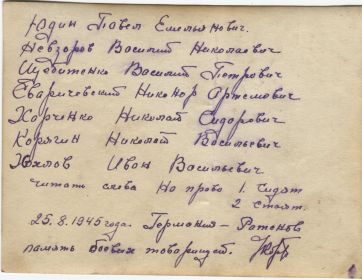 Юдин Павел Емельянович.
Невзоров Василий Николаевич
Щебитенко Василий Петрович
Еваричевский Никонор Артемович
Харченко Николай Сидорович
Корягин Николай Васильевич
Иван Васильевич
читать слева на право 1. сидят
2 стоят.
25.8.1945 года. Германия - Ратенов
память боевых товарищей.